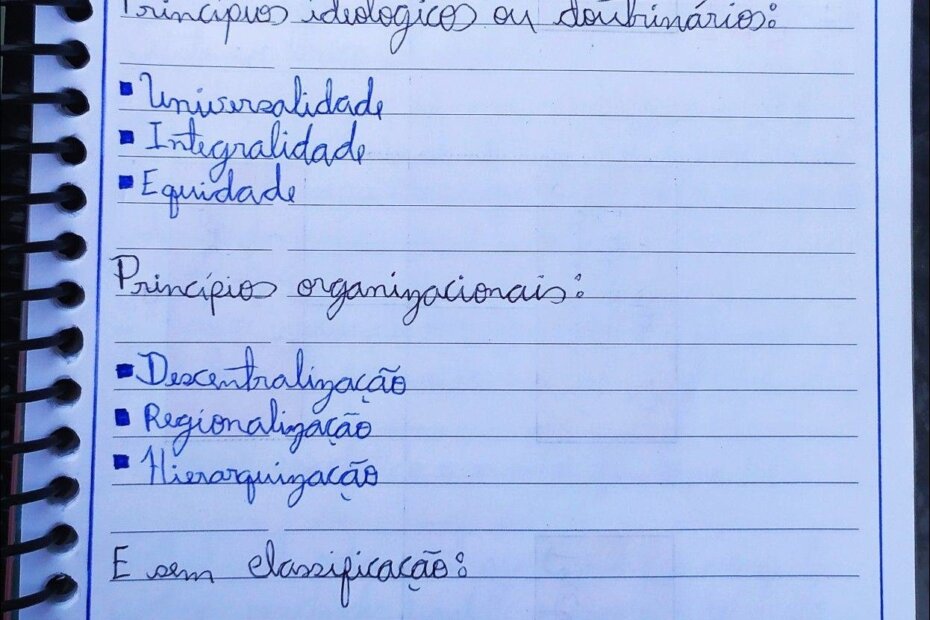 Princípios ideologicos ou doutrinários:
Universalidade
Integralidade
Equidade
Princípios organizacionais:
Descentralização
Regionalização
Hierarquização
E sem classificação: